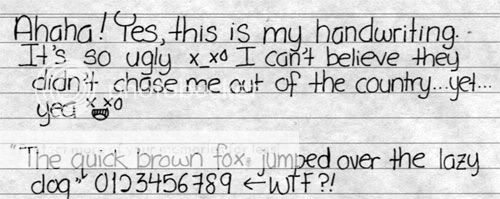 Ahaha! Yes, this is my handwriting.
It's so ugly x_xo I can't believe they
didn't chase me out of the country...yet...
yea x xo
"The quick brown fox jumped over the lazy
dog" 0123456789 ←WTF?!